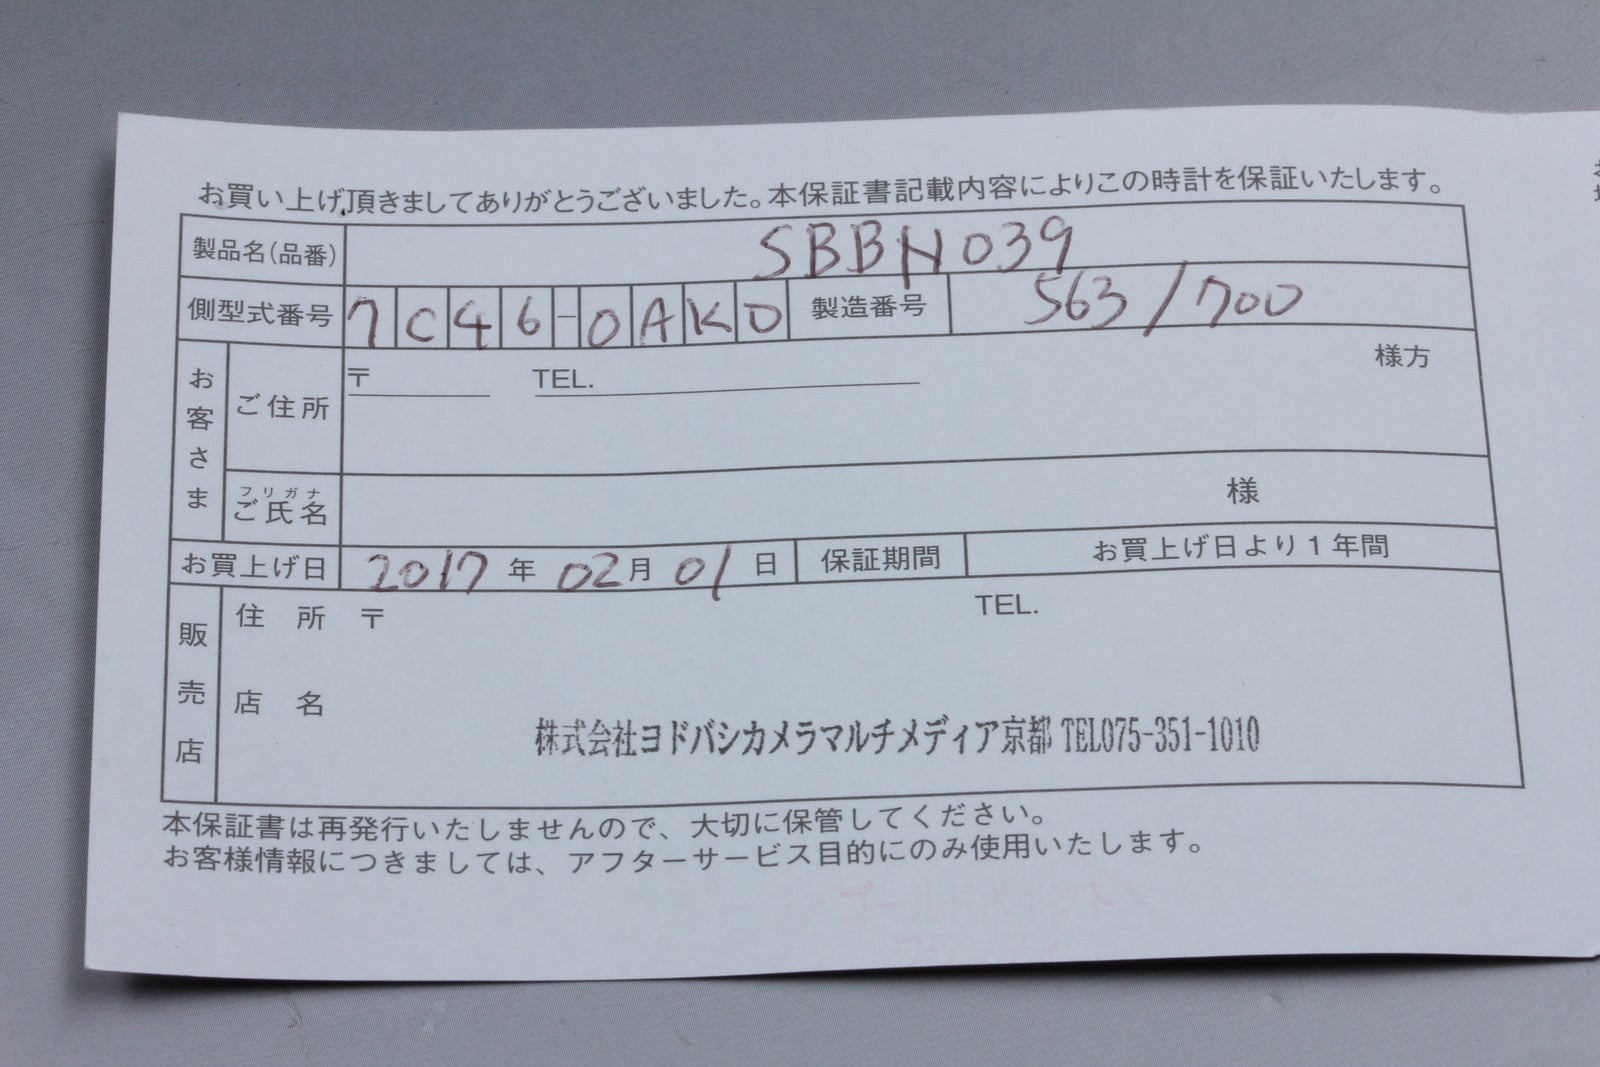 お買い上げ頂きましてありがとうございました。本保証書記載内容によりこの時計を保証いたします。
製品名(品番) SBBN039
側型式番号 7C46-0AK0 製造番号 563/700
お客さま
ご住所 〒 TEL. 様方
フリガナ
ご氏名 様
お買上げ日 2017年02月01日 保証期間 お買上げ日より1年間
販売店
住所 〒 TEL.
店名
株式会社ヨドバシカメラマルチメディア京都 TEL075-351-1010
本保証書は再発行いたしませんので、大切に保管してください。
お客様情報につきましては、アフターサービス目的にのみ使用いたします。